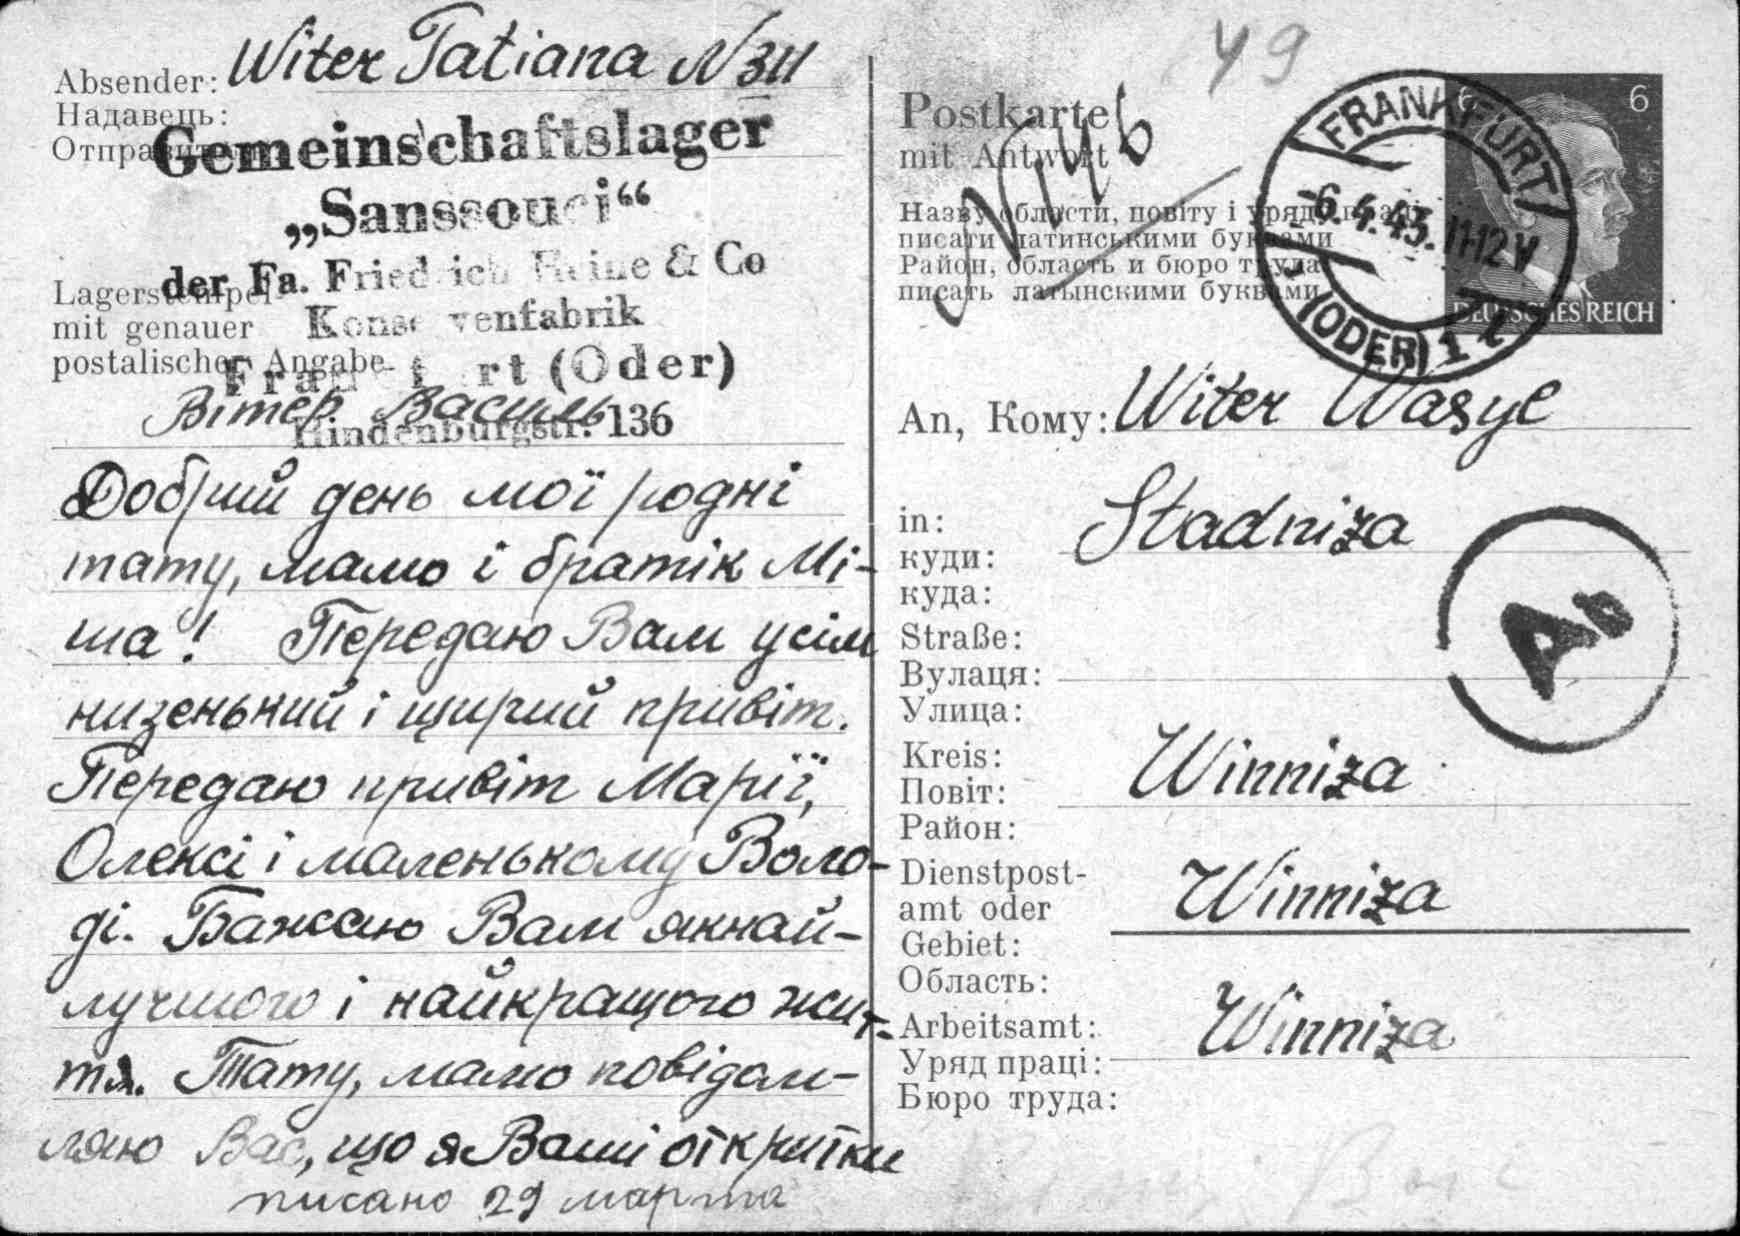 Absender: Witer Tatiana N 311
Надавець:
Gemeinschaftslager
„Sanssouci“
der Fa. Friedrich Heine & Co
Lagerstempel
mit genauer Konservenfabrik
postalischer Angabe
Frankfurt (Oder)
Вітер Василь
Hindenburgstr. 136
Добрий день мої родні
тату, мамо і братік Мі-
ша! Передаю Вам усім
низенький і щирий привіт.
Передаю привіт Марії,
Олексі і маленькому Воло-
ді. Бажаю Вам якнай-
лучшого і найкращого жит-
тя. Тату, мамо повідом-
ляю Вас, що я Ваші откритки
писано 29 марта
49
Postkarte
mit Antwort
N 146
Назву области, повіту і уряду праці
писати латинськими буквами
Район, область и бюро труда
писать латынскими буквами
FRANKFURT
-6.4.43.11-12 V
(ODER) 1
6 6
DEUTSCHES REICH
An, Кому: Witer Wasyl
in: Stadniza
куди:
куда:
Ab
Straße:
Вулаця:
Улица:
Kreis: Winniza
Повіт:
Район:
Dienstpost-
amt oder Winniza
Gebiet:
Область:
Arbeitsamt: Winniza
Уряд праці:
Бюро труда: